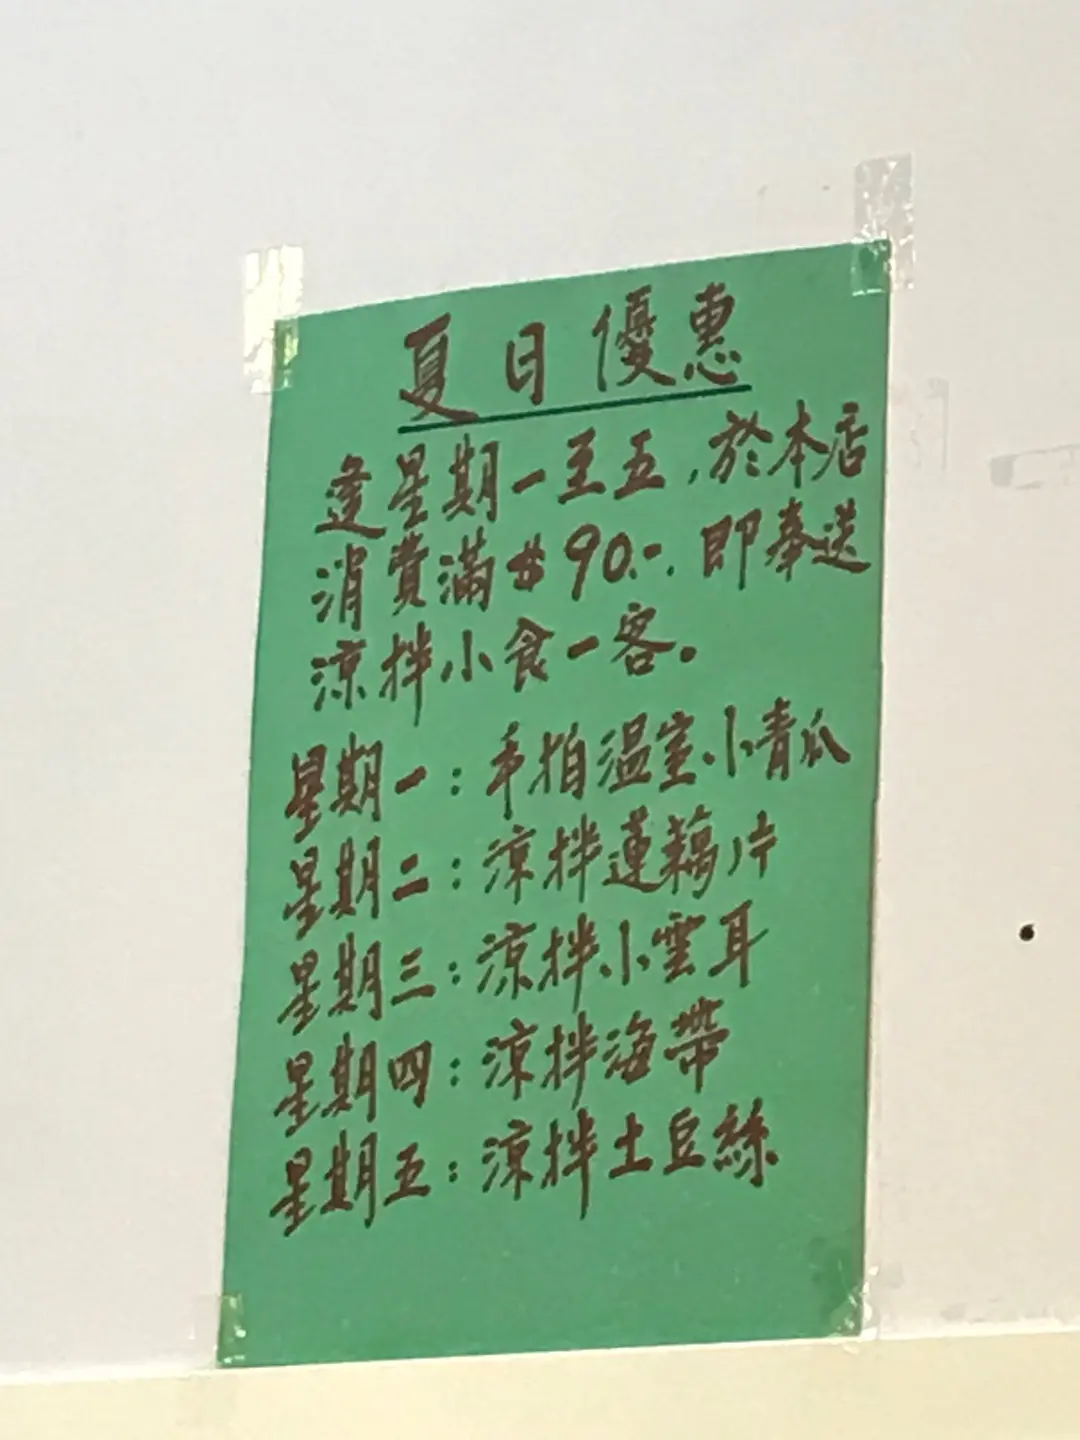 夏日優惠
逢星期一至五,於本店
消費滿$90.-.即奉送
涼拌小食一客。
星期一:手拍溫室小青瓜
星期二:涼拌蓮藕片
星期三:涼拌小雲耳
星期四:涼拌海帶
星期五:涼拌土豆絲